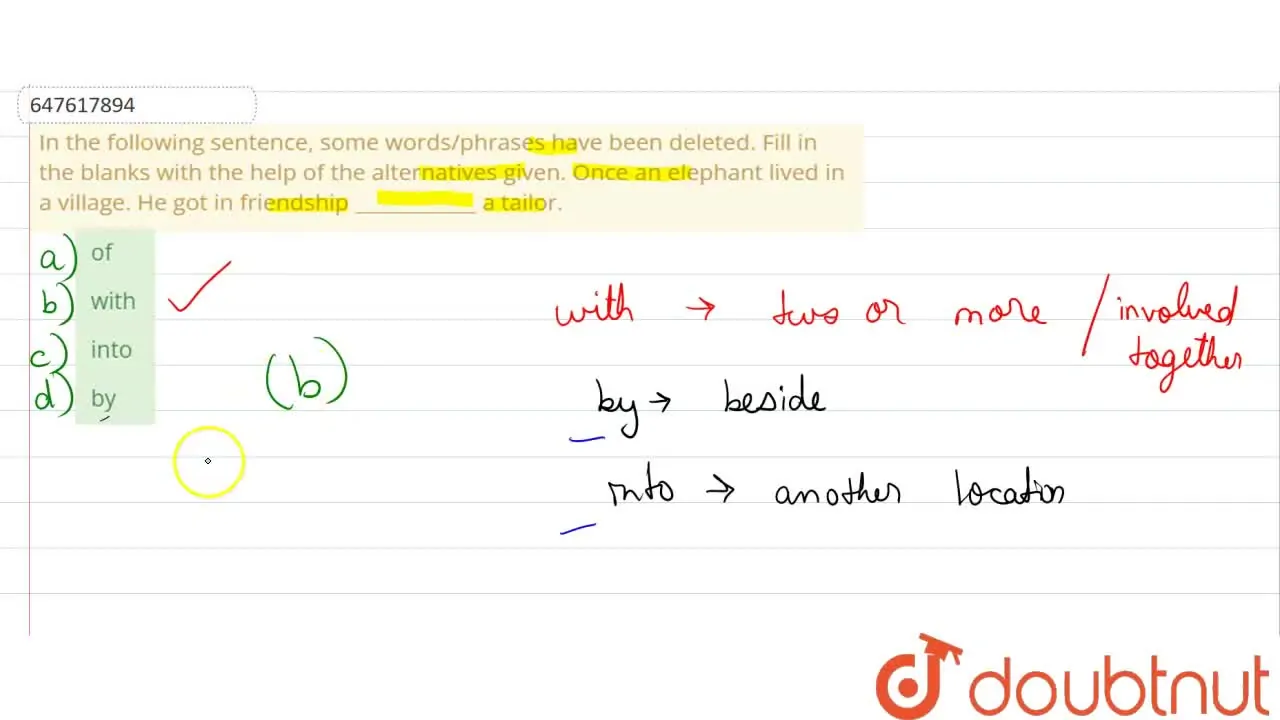 647617894
In the following sentence, some words/phrases have been deleted. Fill in
the blanks with the help of the alternatives given. Once an elephant lived in
a village. He got in friendship ____________ a tailor.
a) of
b) with
c) into
d) by
(b)
with → two or more / involved
together
by → beside
into → another location
doubtnut